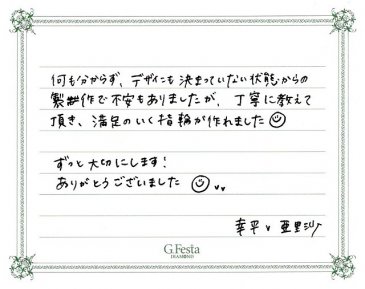 何も分からず、デザインも決まっていない状態からの
製作で不安もありましたが、丁寧に教えて
頂き、満足のいく指輪が作れました
ずっと大切にします!
ありがとうございました
幸平 亜里沙
G.Festa
DIAMOND